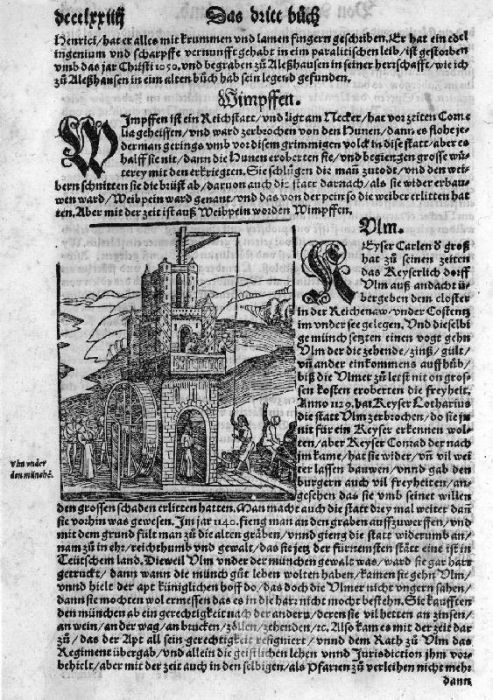 dcccLxxiiij Das dritt bůch
Henrici/ hat er alles mit krummen vnd lamen fingern geschriben. Er hat ein edel
ingenium vnd scharpffe vernunfft gehabt in eim paralitischen leib/ ist gestorben
vmb das jar Christi 1050. vnd begraben zů Aleßhausen in seiner herrschafft/ wie ich
zů Aleßhausen in eim alten bůch hab sein legend gefunden.
Wimpffen.
WImpffen ist ein Reichstatt/ vnd ligt am Necker/ hat vor zeiten Corne
lia geheissen/ vnd ward zerbrochen von den Hunen/ dann es flohe je=
derman gerings vmb vor disem grimmigen volck in dise statt/ aber es
halff sie nit/ dann die Hunen eroberten sie/ vnd begiengen grosse wü=
terey mit den erkriegten. Sie schlůgen die mañ zutodt/ vnd den wei=
bern schnitten sie die brüst ab/ daruon auch die statt darnach/ als sie wider erbau=
wen ward/ Weibpein ward genant/ vnd das von der pein so die weiber erlitten hat
ten. Aber mit der zeit ist auß Weibpein worden Wimpffen.
Vlm.
KEyser Carlen d̕ groß
hat zů seinen zeiten
das Keyserlich dorff
Vlm auß andacht ü=
bergeben dem closter
in der Reichenaw/ vnder Costentz
im vnder see gelegen. Vnd dieselbi
ge münch setzten einen vogt gehn
Vlm der die zehende/ zinß/ gült/
vñ ander einkommens auffhüb/
biß die Vlmer zů letst mit gros=
sen kosten eroberten die freyheit.
Anno 1129. hat Keyser Lotharius
die statt Vlm zerbrochen/ do sie jn
nit für ein Keyser erkennen wol=
ten/ aber Keyser Conrad der nach
jm kame/ hat sie wider/ vñ vil wei
ter lassen bauwen/ vnnd gab den
burgern auch vil freyheiten/ an=
gesehen das sie vmb seinet willen
Vlm vnder
den münchē.
den grossen schaden erlitten hatten. Man macht auch die statt drey mal weiter dañ
sie vorhin was gewesen. Im jar 1140. fieng man an den graben auffzuwerffen/ vnd
mit dem grund fült man zů die alten gräben/ vnnd gieng die statt widerumb an/
nam zů in ehr/ reichthumb vnd gewalt/ das sie jetz der fürnemsten stätt eine ist in
Teütschem land. Dieweil Vlm vnder der münchen gewalt was/ ward sie gar hart
getruckt/ dann wann die münch gůt leben wolten haben/ kamen sie gehn Vlm/
vnnd hielt der apt küniglichen hoff do/ das doch die Vlmer nicht vngern sahen/
dann sie mochten wol ermessen das es in die harr nicht mocht bestehn. Sie kaufften
den münchen ab ein gerechtigkeit nach der andern/ deren sie vil hetten an zinsen/
an wein/ an der wag/ an brucken/ zöllen/ zehenden/ ꝛc. Also kam es mit der zeit dar
zů/ das der Apt all sein gerechtigkeit resigniert/ vnnd dem Rath zů Vlm das
Regiment übergab/ vnd allein die geistlichen lehen vnnd Jurisdiction jhm vor=
behielt/ aber mit der zeit auch in den selbigen/ als Pfarren zů verleihen nicht mehr
dann